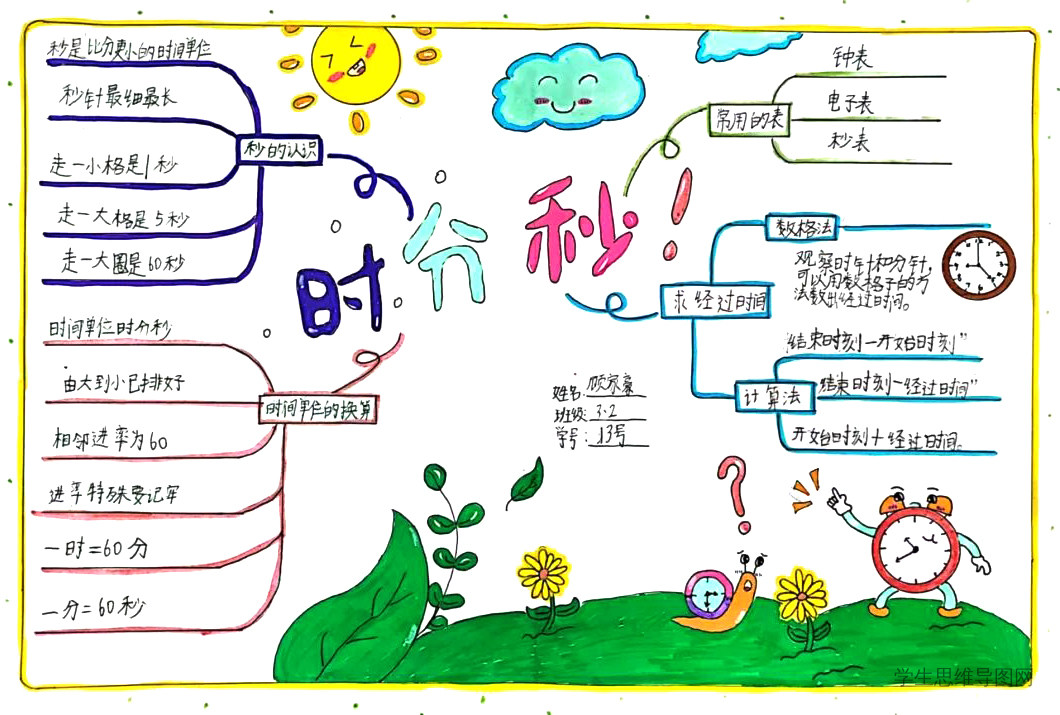 时分秒!
秒的认识
秒是比分更小的时间单位
秒针最细最长
走一小格是1秒
走一大格是5秒
走一大圈是60秒
时间单位的换算
时间单位时分秒
由大到小已排好
相邻进率为60
进率特殊要记牢
一时=60分
一分=60秒
常用的表
钟表
电子表
秒表
求经过时间
数格法
观察时针和分针,
可以用数格子的方
法数出经过时间。
计算法
"结束时刻-开始时刻"
结束时刻-经过时间"
开始时刻+经过时间。
姓名:
班级:3.2
学号:13号
?
学生思维导图网